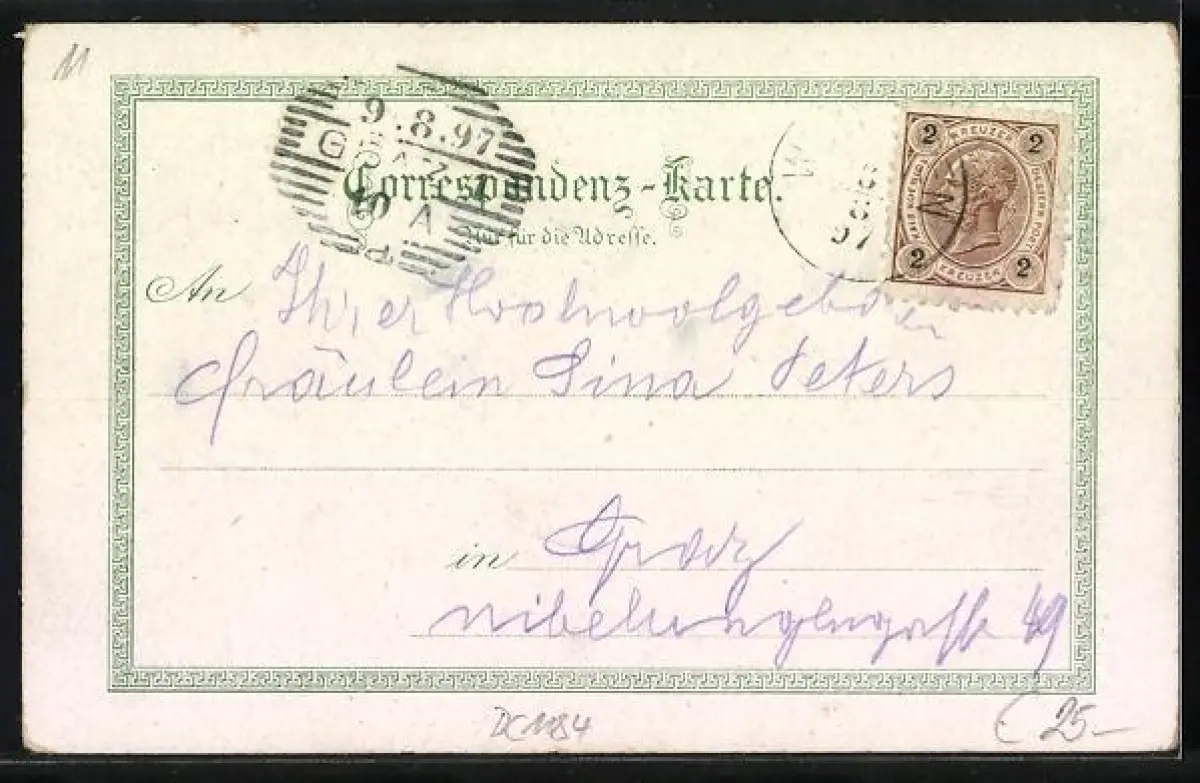 11
9.8.97
GRAZ
Correspondenz-Karte.
Nur für die Adresse.
2 KREUZER 2
2 KREUZER 2
97
An Ihrer Hochwolgeboren
Fräulein Lina Peters
in Graz
Nibelungengasse 49
DC1184
25-